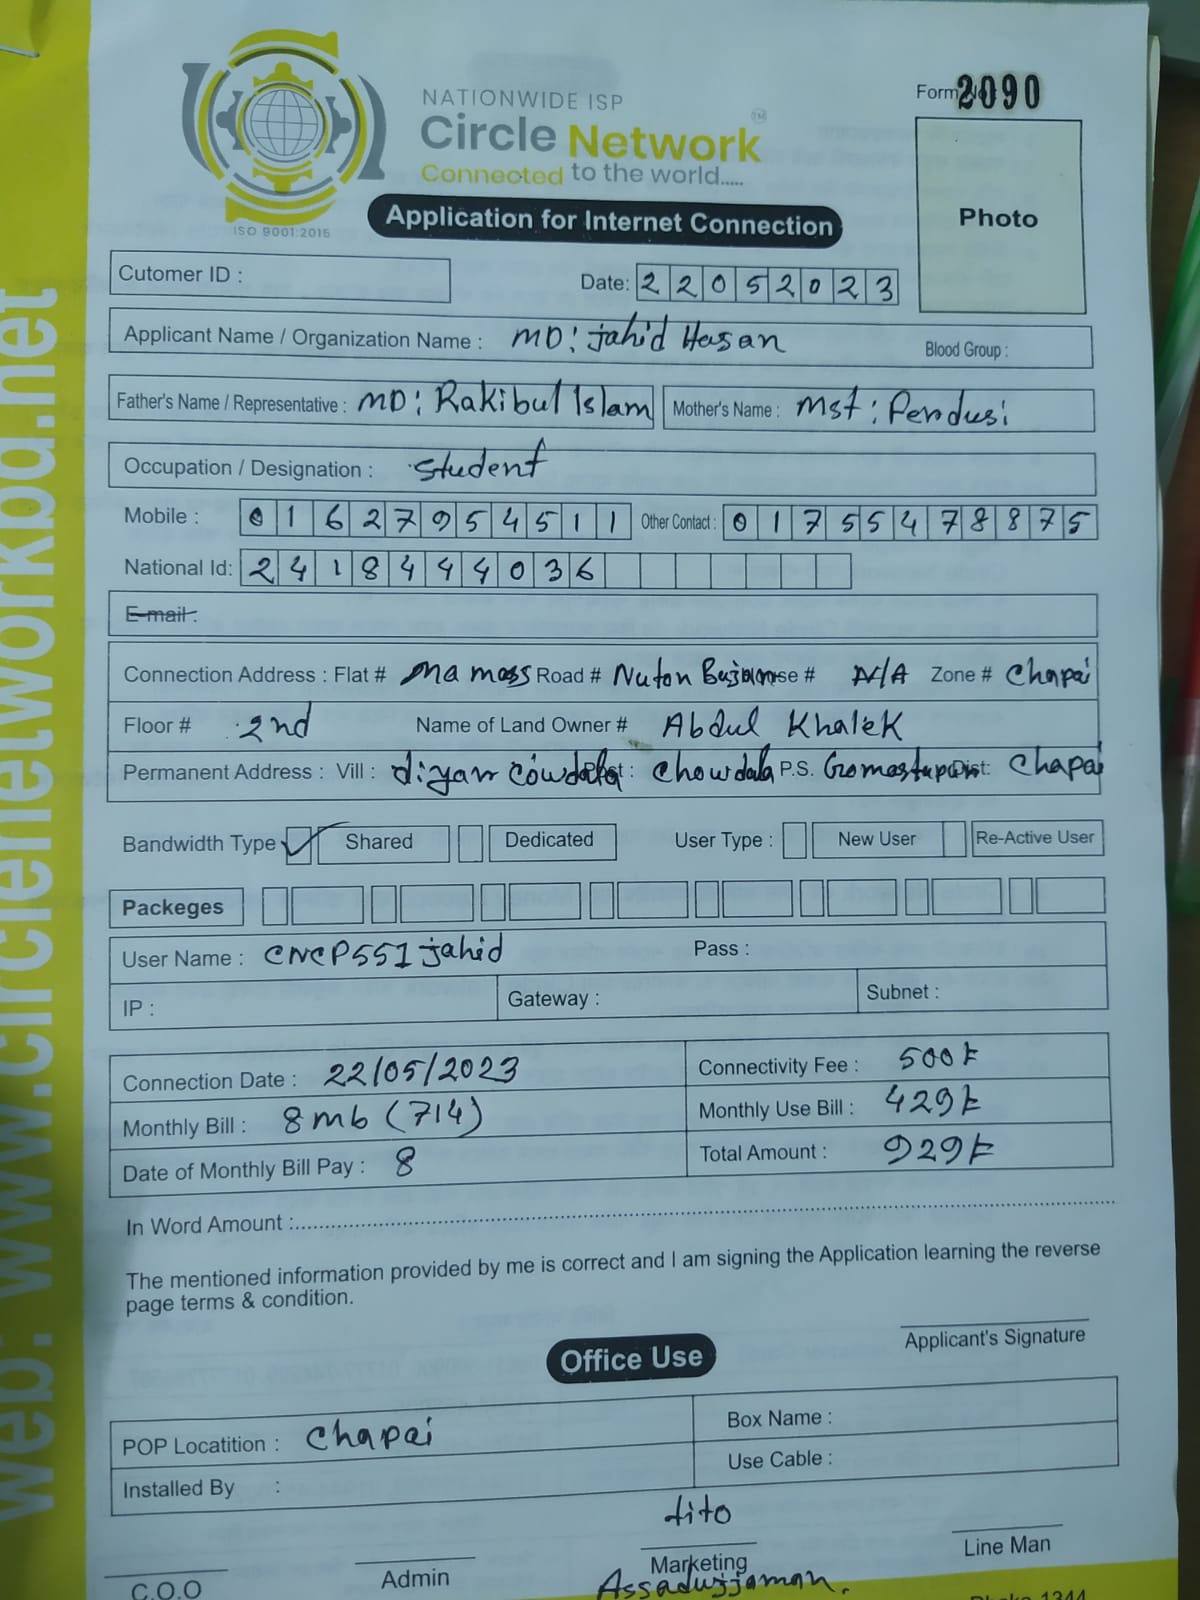 NATIONWIDE ISP
Circle Network TM
Connected to the world.....
ISO 9001:2015
Form No: 2090
Photo
Application for Internet Connection
Cutomer ID :
Date: 22052023
Applicant Name / Organization Name : MD: Jahid Hasan Blood Group :
Father's Name / Representative : MD: Rakibul Islam Mother's Name : Mst: Perdusi
Occupation / Designation : student
Mobile : 01627954511 Other Contact : 01755478875
National Id: 2418444036
E-mail :
Connection Address : Flat # ma mess Road # Nuton House # N/A Zone # Chapai
Floor # 2nd Name of Land Owner # Abdul Khalek
Permanent Address : Vill : diyar Post : Chowdala P.S. Dist: Chapai
Bandwidth Type Shared Dedicated User Type : New User Re-Active User
Packeges
User Name : CNCP551jahid Pass :
IP : Gateway : Subnet :
Connection Date : 22/05/2023 Connectivity Fee : 500৳
Monthly Bill : 8mb (714) Monthly Use Bill : 429৳
Date of Monthly Bill Pay : 8 Total Amount : 929৳
In Word Amount :
The mentioned information provided by me is correct and I am signing the Application learning the reverse
page terms & condition.
Applicant's Signature
Office Use
POP Locatition : Chapai Box Name :
Installed By : Use Cable :
tito
C.O.O Admin Marketing Line Man
Assaduzjaman.
Dhaka 1344
web: www.circlenetworkbd.net